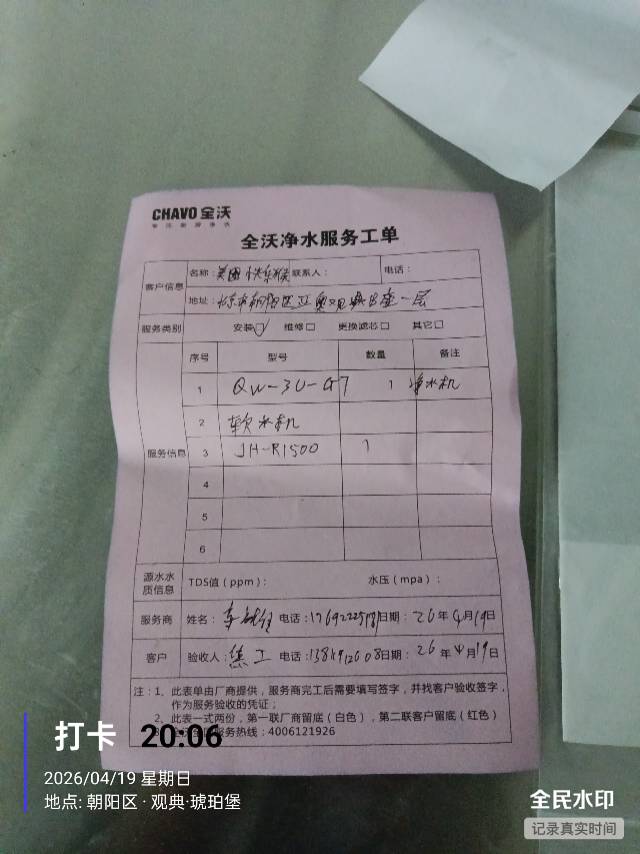 CHAVO 全沃
全沃净水服务工单
客户信息
名称：美团快乐猴 联系人： 电话：
地址：北京市朝阳区 一层
服务类别 安装☑ 维修□ 更换滤芯□ 其它□
服务信息
序号 型号 数量 备注
1 QW-3U-G7 1 净水机
2 软水机
3 JH-R1500 1
4
5
6
源水水质信息 TDS值（ppm）： 水压（mpa）：
服务商 姓名： 电话： 日期：26年4月19日
客户 验收人：焦工 电话： 日期：26年4月19日
注：1、此表单由厂商提供，服务商完工后需要填写签字，并找客户验收签字，
作为服务验收的凭证；
2、此表一式两份，第一联厂商留底（白色），第二联客户留底（红色）
服务热线：4006121926
打卡 20:06
2026/04/19 星期日
地点: 朝阳区 · 观典·琥珀堡
全民水印
记录真实时间